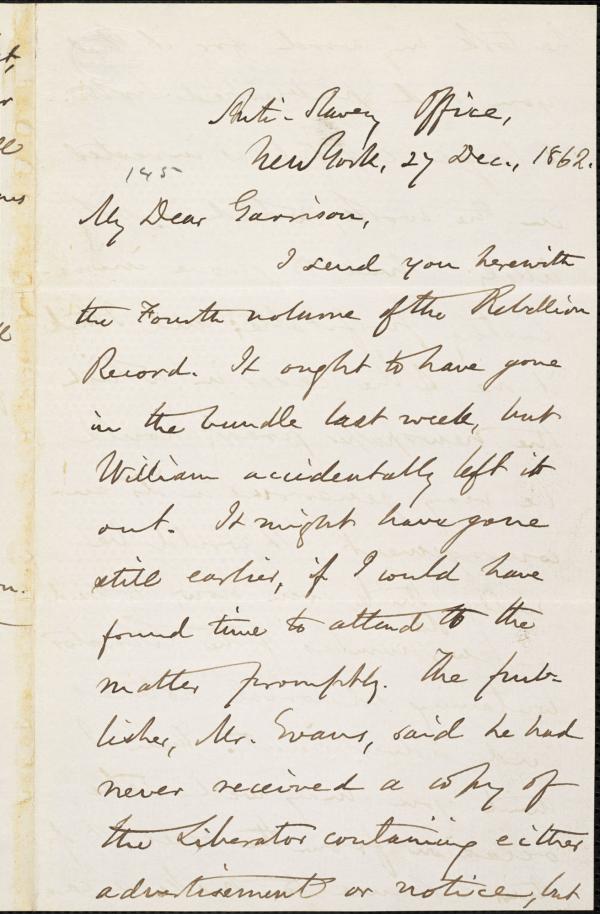 Anti-Slavery Office,
New York, 27 Dec., 1862.
145
My Dear Garrison,
I send you herewith
the Fourth volume of the Rebellion
Record. It ought to have gone
in the bundle last week, but
William accidentally left it
out. It might have gone
still earlier, if I could have
found time to attend to the
matter promptly. The pub-
lisher, Mr. Evans, said he had
never received a copy of
the Liberator containing either
advertisement or notice, but